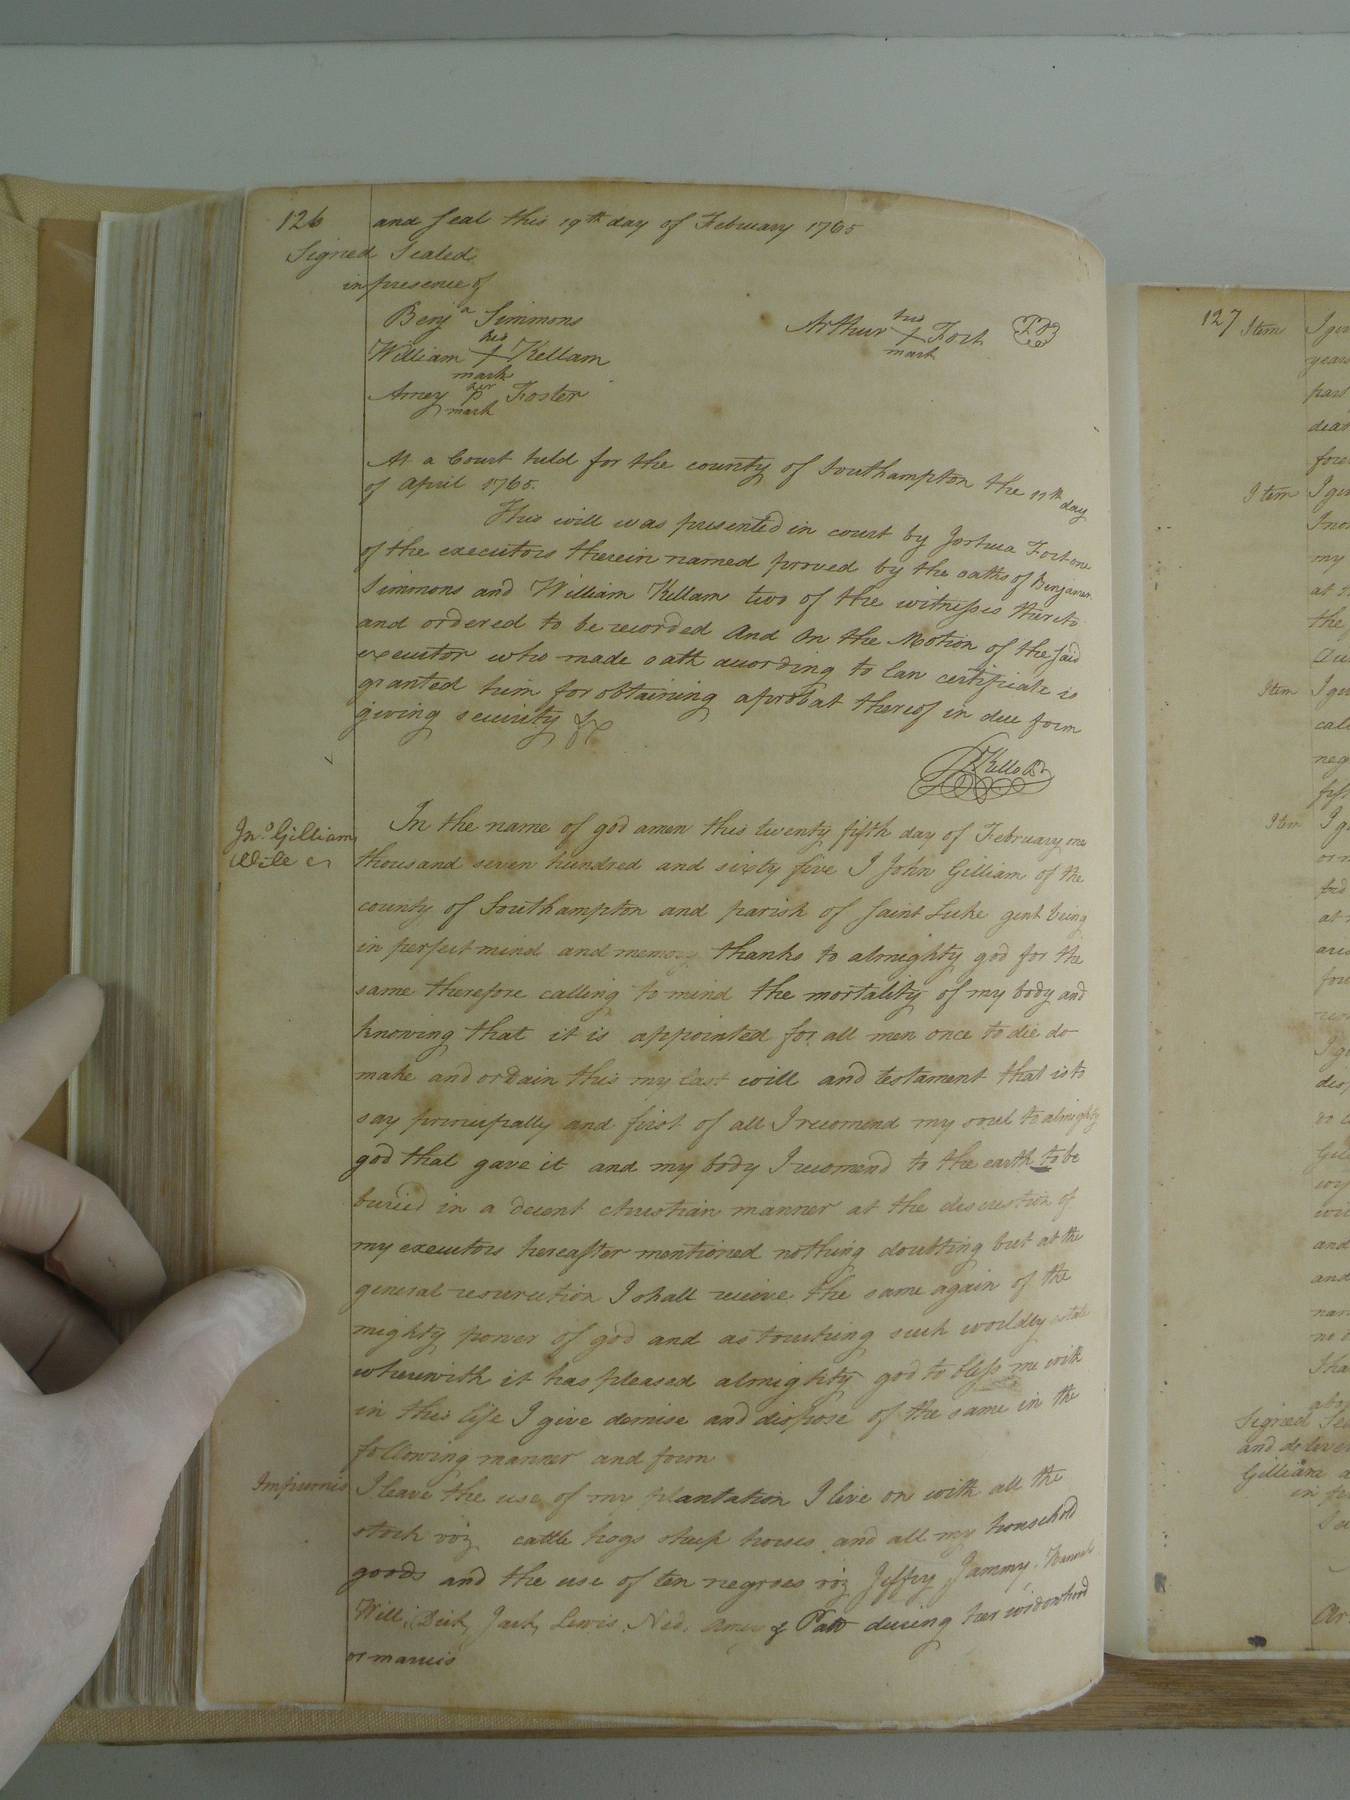 126 and seal this 19th day of February 1765
Signed Sealed
in presence of
Benja Simmons
his
William X Kellam
mark
her
Amey P Foster
mark
his
Arthur X Fort
mark
At a Court held for the county of Southampton the 11th day
of April 1765.
This will was presented in court by Joshua Fort one
of the executors therein named proved by the oaths of Benjamin
Simmons and William Kellam two of the witnesses thereto
and ordered to be recorded And On the Motion of the said
executor who made oath according to law certificate is
granted him for obtaining a probat thereof in due form
giving security &c
Kello
Jno. Gilliam
Will
In the name of god amen this twenty fifth day of February one
thousand seven hundred and sixty five I John Gilliam of the
county of Southampton and parish of Saint Luke gent being
in perfect mind and memory thanks to almighty god for the
same therefore calling to mind the mortality of my body and
knowing that it is appointed for all men once to die do
make and ordain this my last will and testament that is to
say principally and first of all I recomend my soul to almighty
god that gave it and my body I recomend to the earth to be
buried in a decent christian manner at the discretion of
my executors hereafter mentioned nothing doubting but at the
general resurection I shall receive the same again of the
mighty power of god and as touching such worldly estate
wherewith it has pleased almighty god to bless me with
in this life I give demise and dispose of the same in the
following manner and form
Impumis I leave the use of my plantation I live on with all the
stock viz cattle hogs sheep horses and all my household
goods and the use of ten negroes viz Jeffry Jammy
Will, Dick, Jack, Lewis, Ned, Amey & Patt during her widowhood
or marrie
127 Item
Item
Item
Signed
and deliver
Gilliam
in